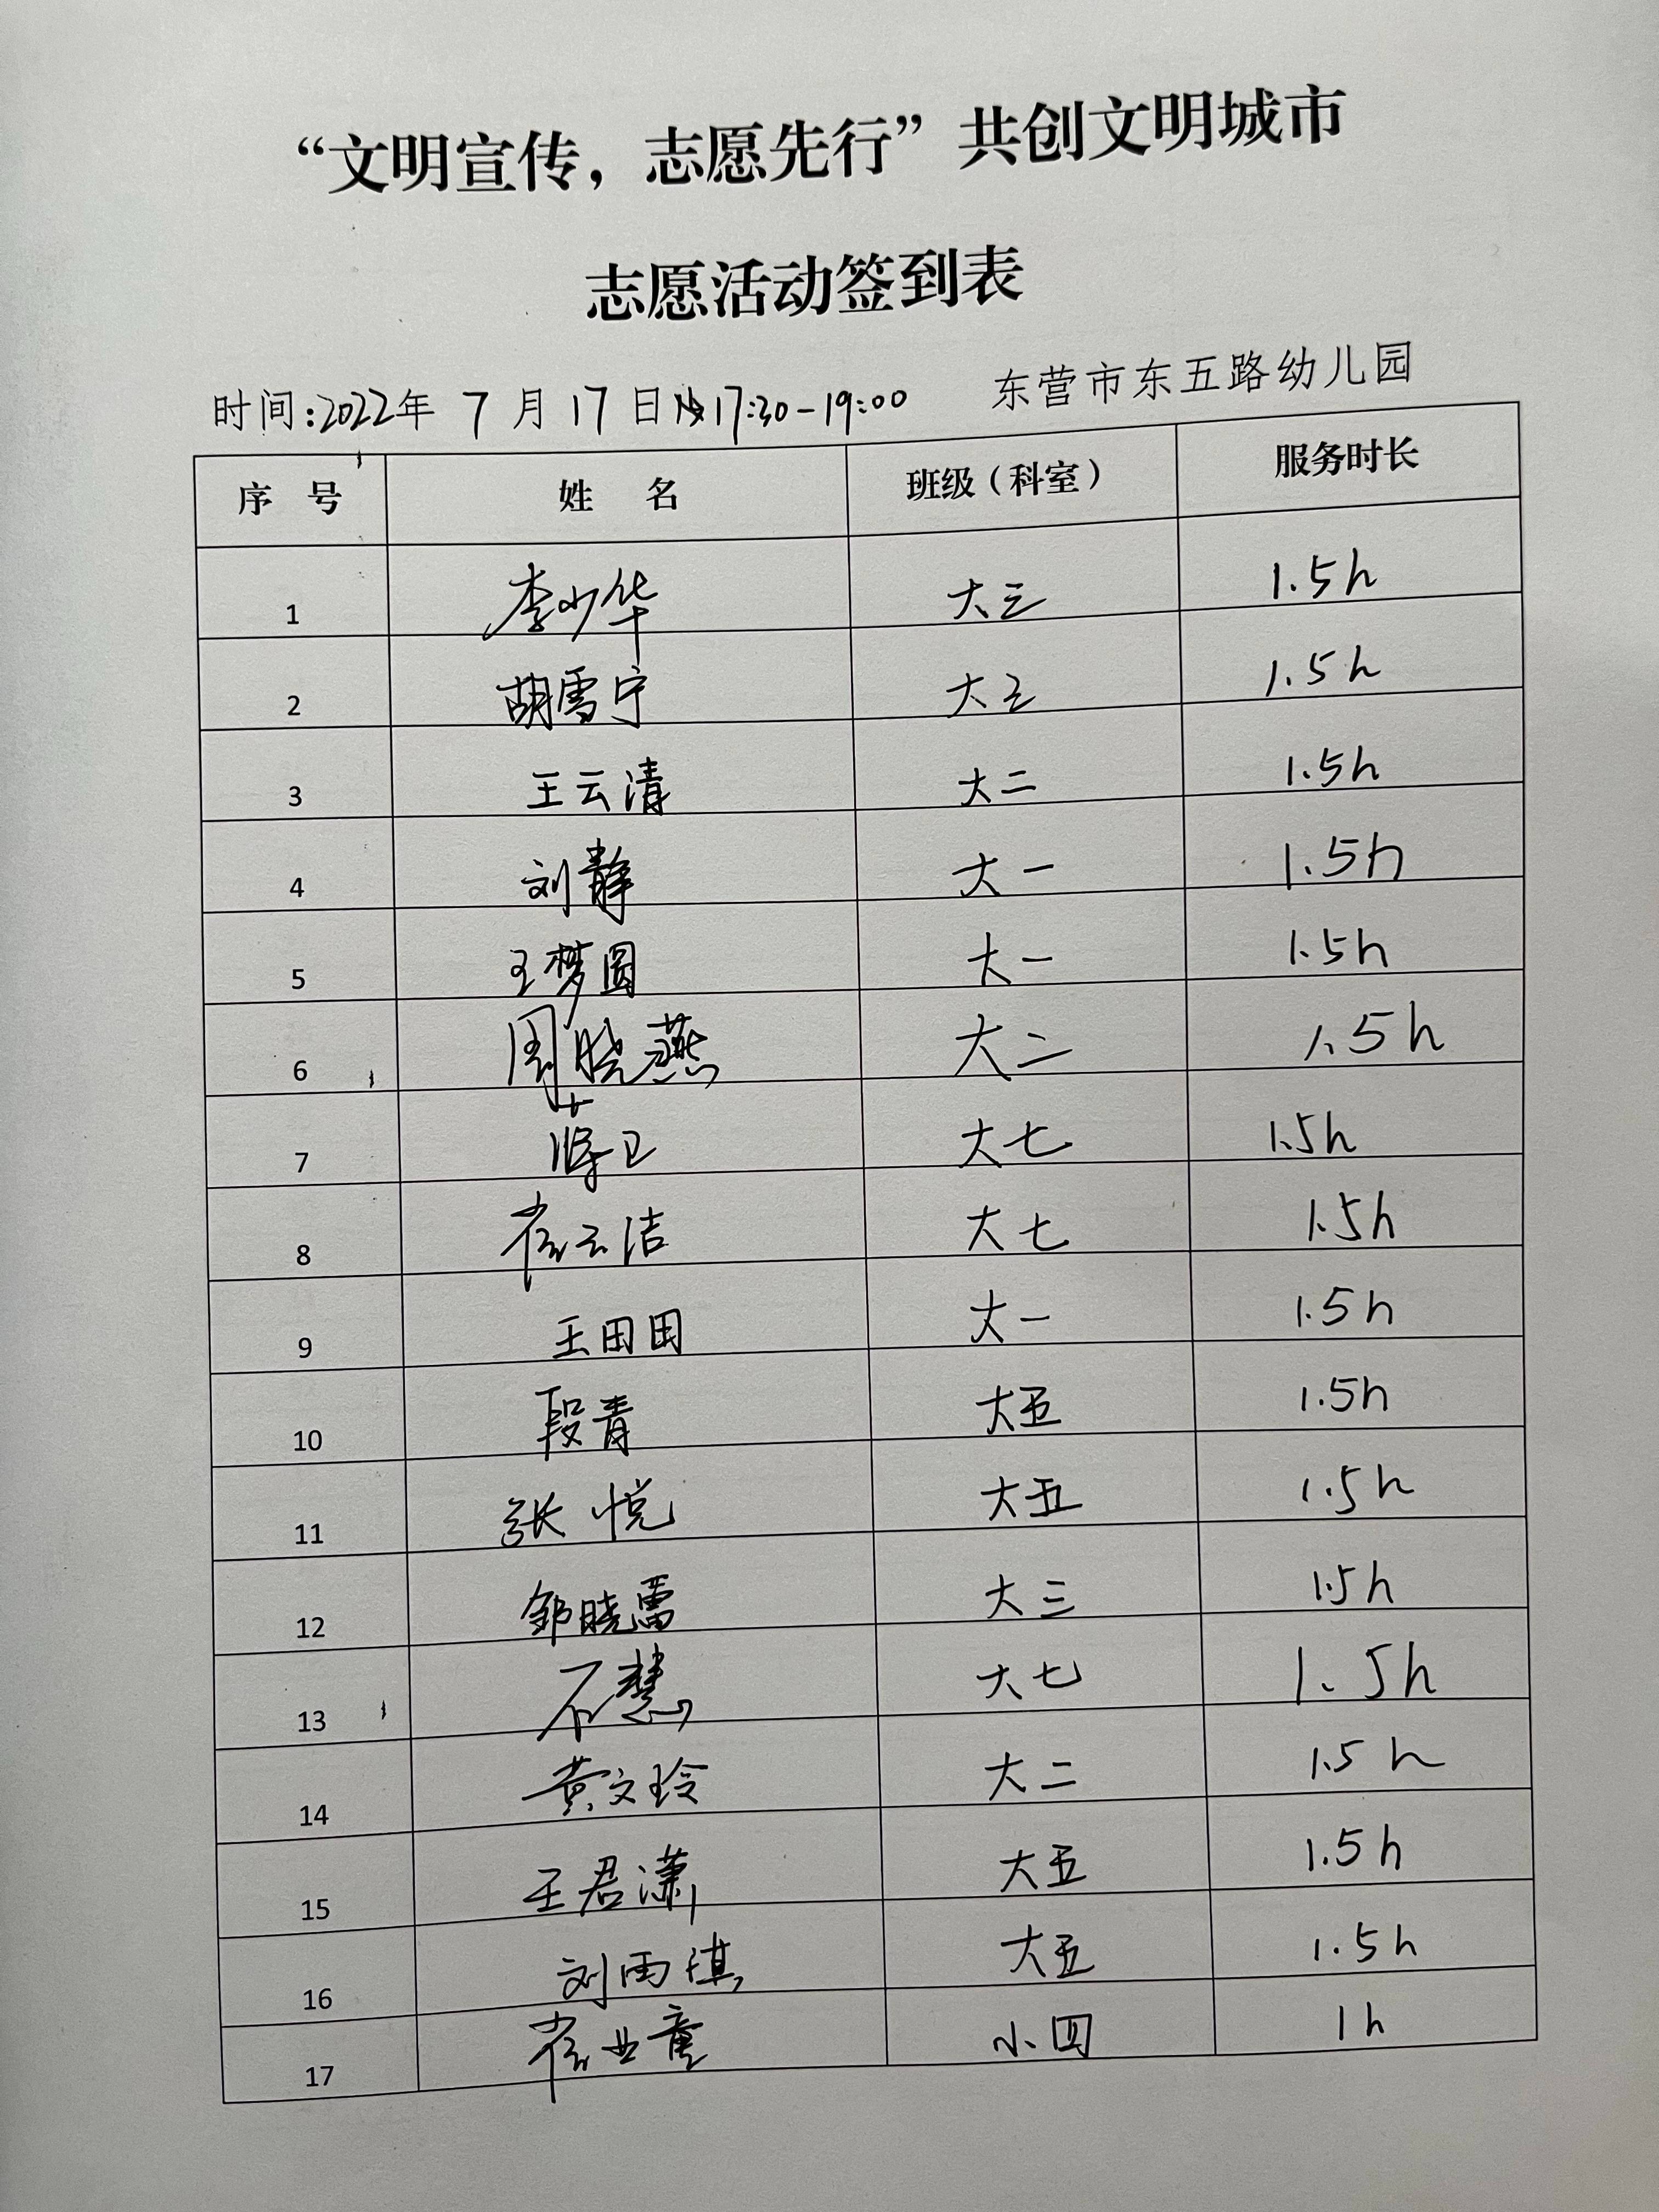 “文明宣传，志愿先行”共创文明城市
志愿活动签到表
时间:2022年 7 月 17 日 17:30-19:00 东营市东五路幼儿园
序 号 姓 名 班级（科室） 服务时长
1 李少华 大三 1.5h
2 胡雪宁 大三 1.5h
3 王云清 大二 1.5h
4 刘静 大一 1.5h
5 王梦圆 大一 1.5h
6 周晓燕 大二 1.5h
7 卫 大七 1.5h
8 崔云洁 大七 1.5h
9 王田田 大一 1.5h
10 段青 大五 1.5h
11 张悦 大五 1.5h
12 邹晓雷 大三 1.5h
13 慧 大七 1.5h
14 黄文玲 大二 1.5h
15 王君潇 大五 1.5h
16 刘雨琪 大五 1.5h
17 崔业童 小四 1h